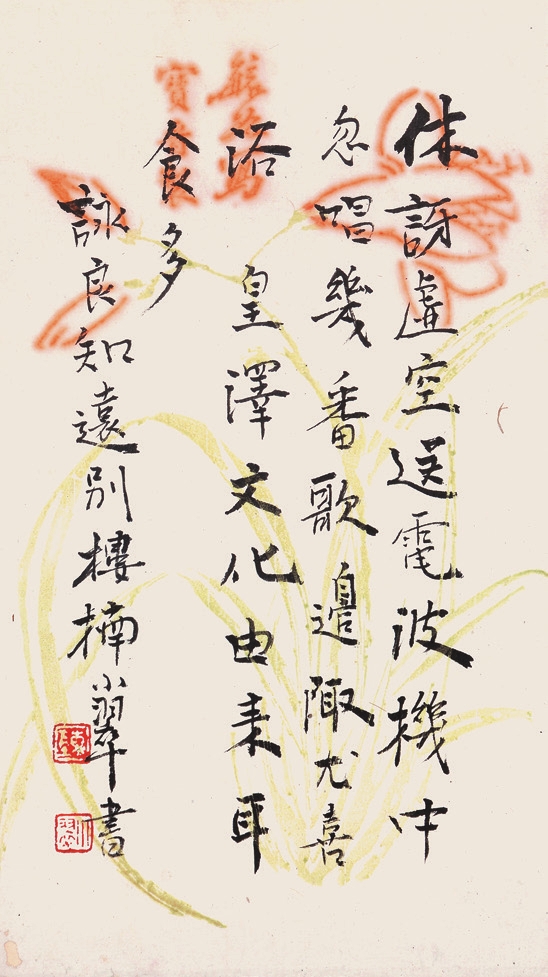 休訝虛空送電波機中
忽唱幾番歌邊陬尤喜
浴 皇澤文化由来耳
食多
詠良知遠別樓楠小翠書